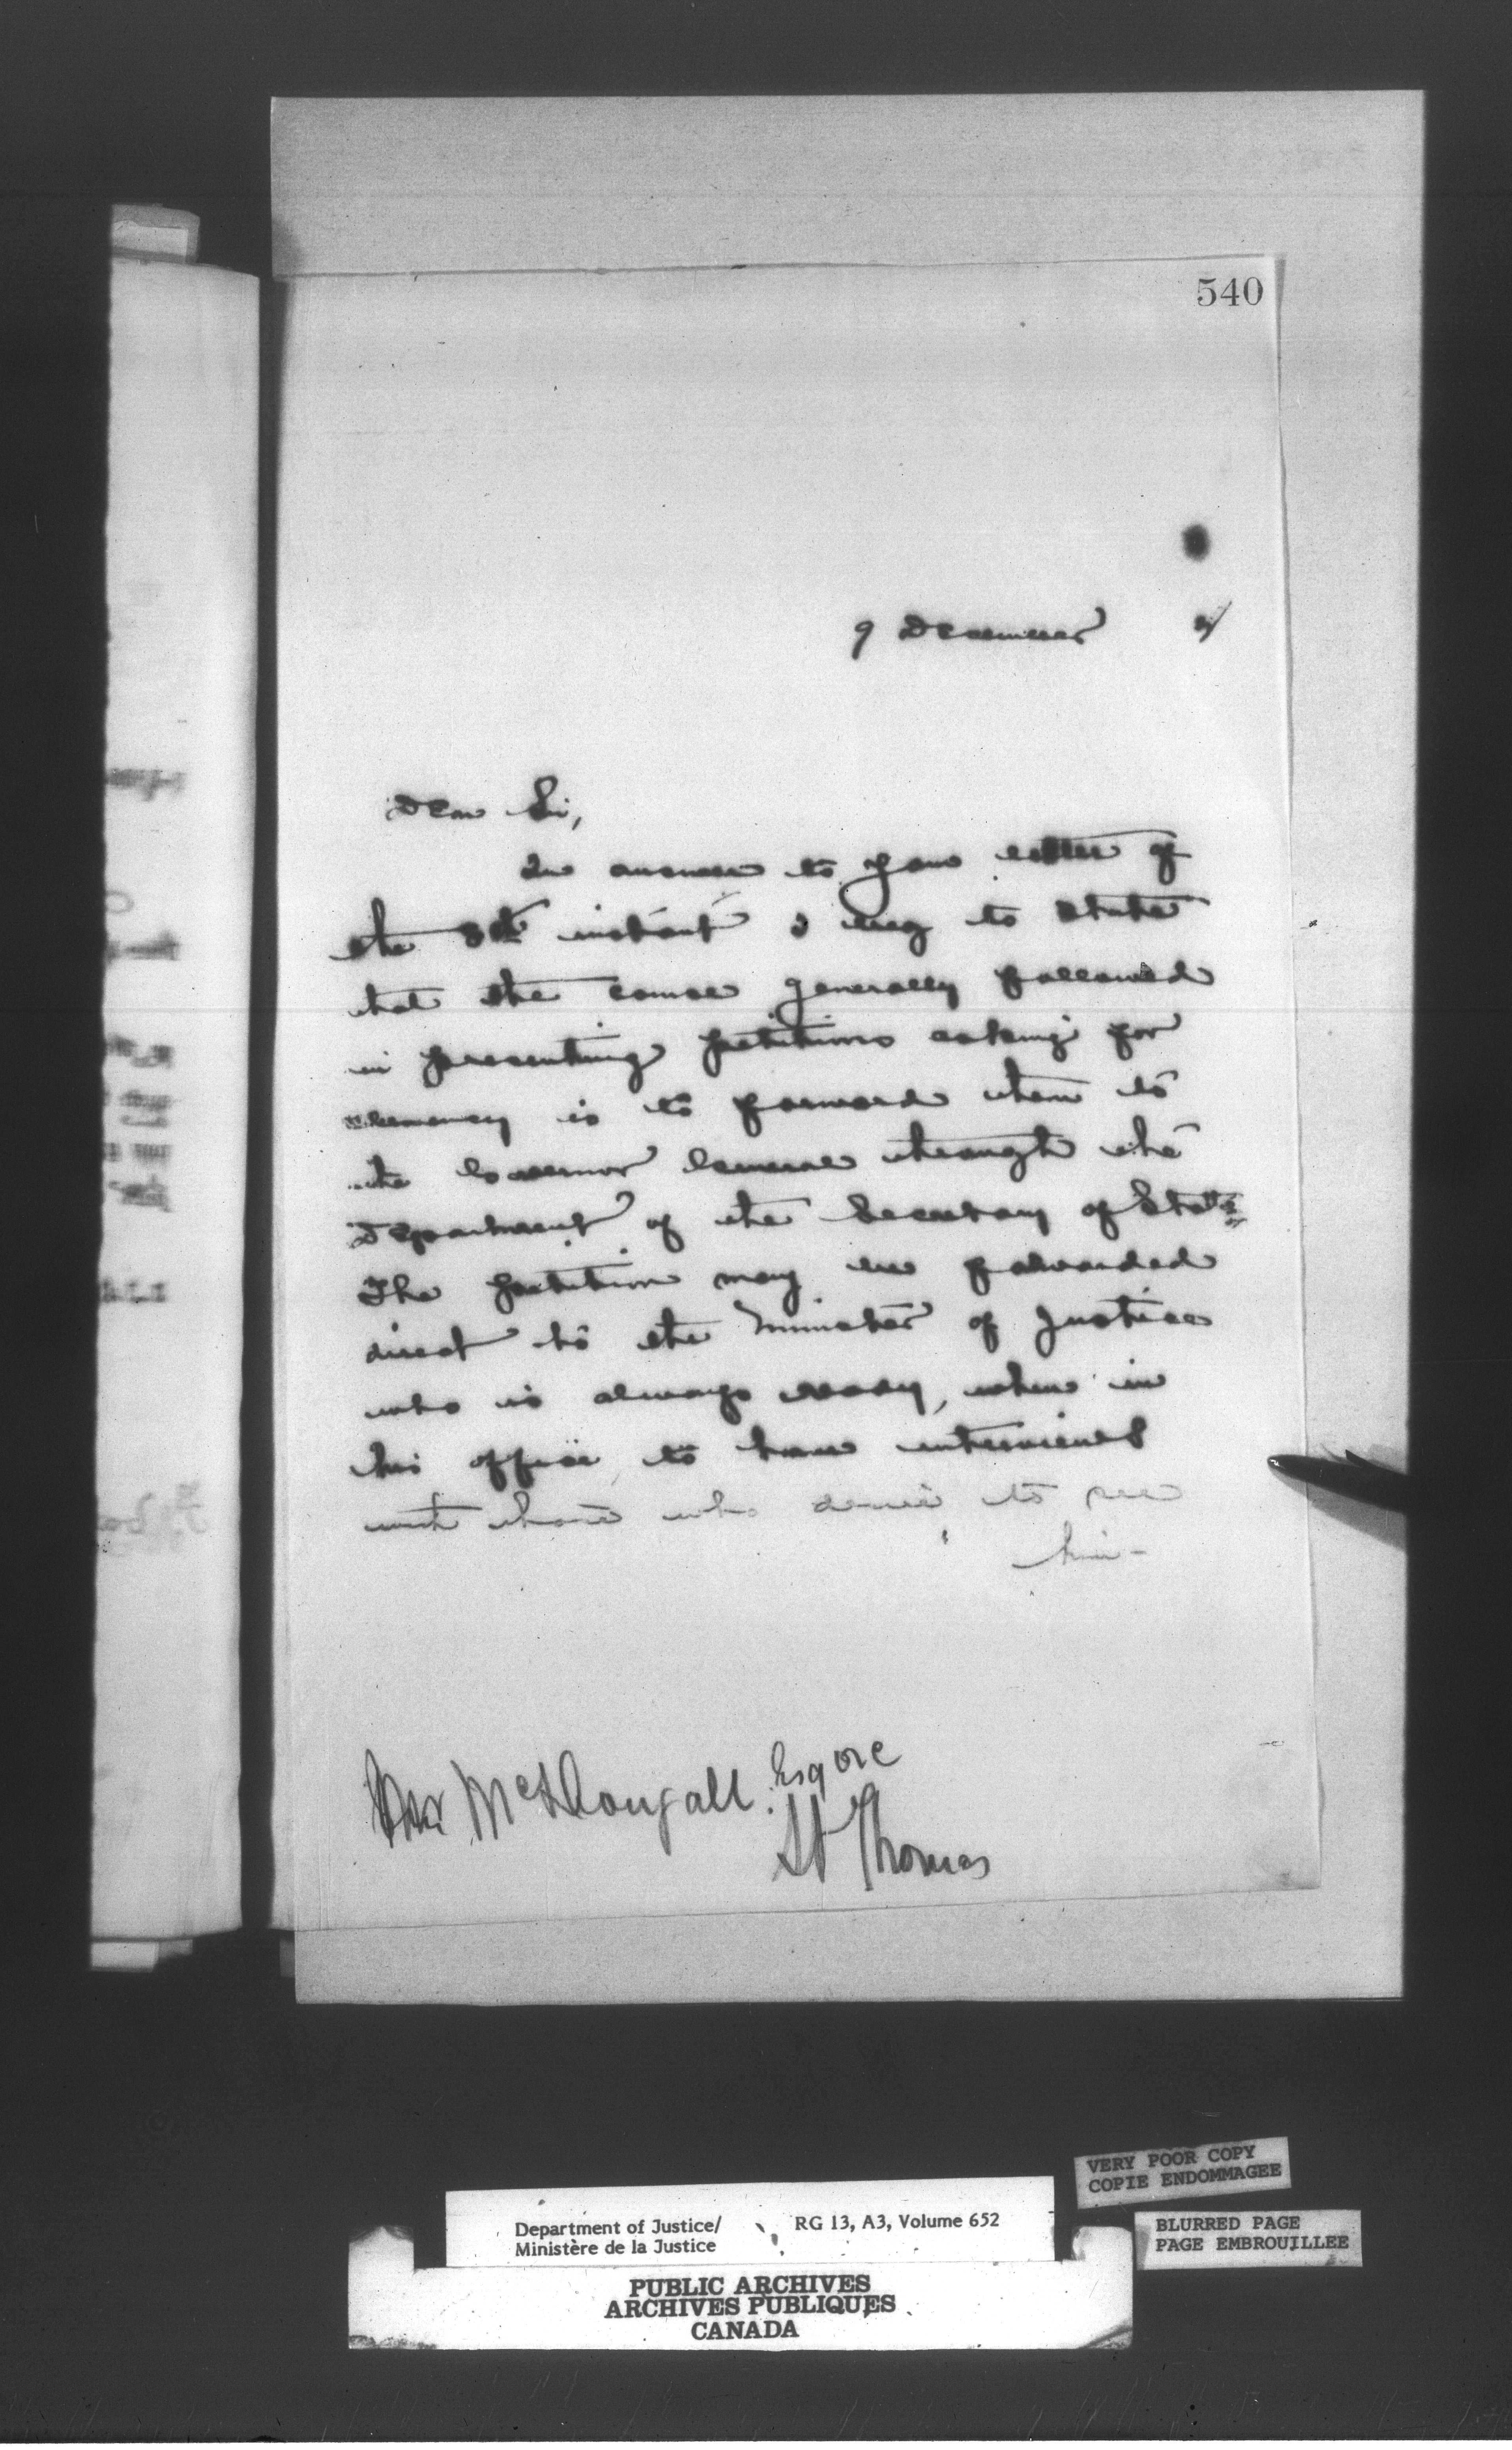 540
9 December
Dear Sir,
In answer to your letter of
the 3rd instant I beg to state
that the course generally followed
in presenting petitions asking for
clemency is to forward them to
the Governor General through the
Department of the Secretary of State
The petition may be forwarded
direct to the Minister of Justice
who is always ready, when in
his office, to have interviews
with those who desire to see
him -
McDougall Esqre
St Thomas
VERY POOR COPY
COPIE ENDOMMAGEE
Department of Justice/
Ministère de la Justice
RG 13, A3, Volume 652
BLURRED PAGE
PAGE EMBROUILLEE
PUBLIC ARCHIVES
ARCHIVES PUBLIQUES
CANADA